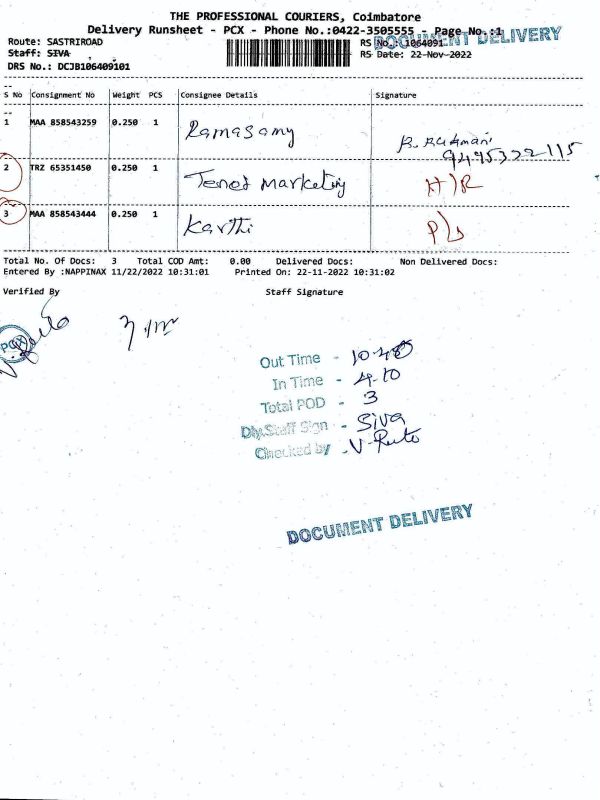 THE PROFESSIONAL COURIERS, Coimbatore
Delivery Runsheet - PCX - Phone No.:0422-3505555 - Page No.:1
DOCUMENT DELIVERY
Route: SASTRIROAD
RS No.: 1064091
Staff: SIVA
RS Date: 22-Nov-2022
DRS No.: DCJB106409101
S No Consignment No Weight PCS Consignee Details Signature
1 MAA 858543259 0.250 1 Ramasamy
2 TRZ 65351450 0.250 1 Tenet Marketing
3 MAA 858543444 0.250 1 Karthi
Total No. Of Docs: 3 Total COD Amt: 0.00 Delivered Docs: Non Delivered Docs:
Entered By :NAPPINAX 11/22/2022 10:31:01 Printed On: 22-11-2022 10:31:02
Verified By Staff Signature
PCX
Out Time -
In Time - 4-10
Total POD - 3
Dly.Staff Sign - Siva
Checked by -
DOCUMENT DELIVERY